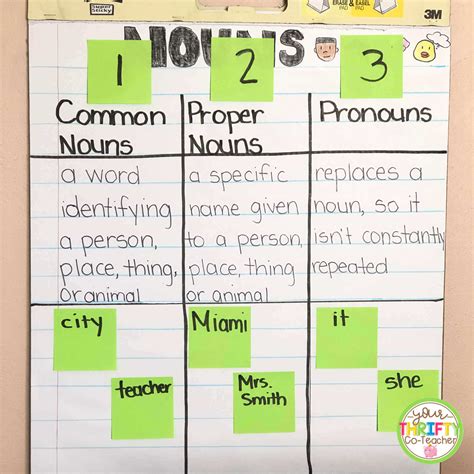 Super Sticky
ERASE & EASEL
PAD
PAD
3M
NOUNS
1
2
3
Common
Nouns
Proper
Nouns
Pronouns
a word
identifying
a person,
place, thing,
or animal
a specific
name given
to a person,
place, thing
or animal
replaces a
noun, so it
isn't constantly
repeated
city
teacher
Miami
Mrs.
Smith
it
she
your
THRIFTY
Co-Teacher